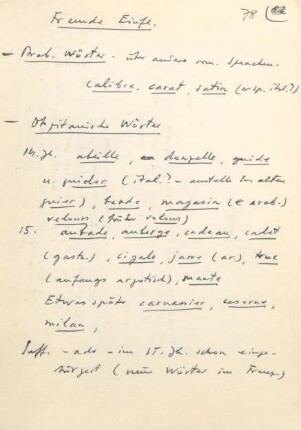 Fremde Einfl.
78
— Arab. Wörter - über andere rom. Sprachen
calibre, carat, satin (arsp. ital.?)
— Okzitanische Wörter
14. Jh. abeille, donzelle, guide
u. guider (ital.? - anstelle des alten
guier), magasin (< arab.)
velours (früher velous)
15. aubade, auberge, cadeau, cadet
(gaste), cigale, jarre (ar), truc
(anfangs argotisch),
Etwas später carnassier, caserne,
milan,
Suff. - ade - im 15. Jh. schon einge-
bürgert (neue Wörter im Franz.)